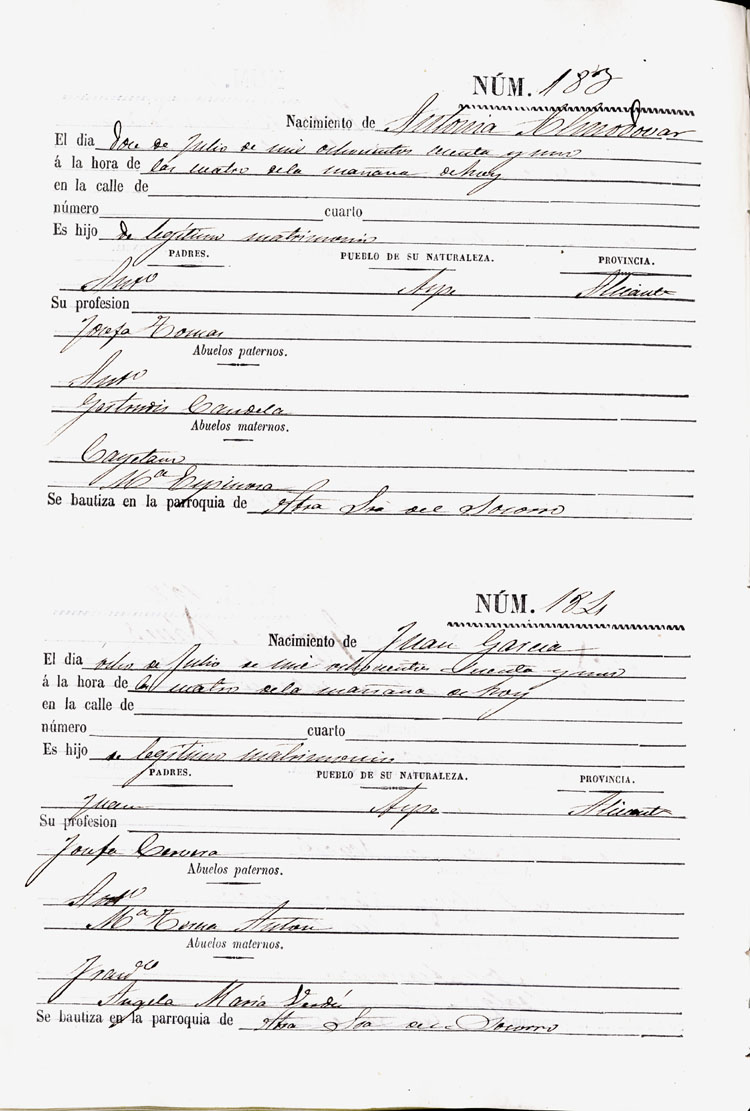 NÚM. 183
Nacimiento de Antonia Almodovar
El dia doce de Julio de mil ochocientos y uno
á la hora de las cuatro de la mañana de hoy
en la calle de
número cuarto
Es hijo de legítimo matrimonio
PADRES. PUEBLO DE SU NATURALEZA. PROVINCIA.
Antº Aspe Alicante
Su profesion
Josefa Tomas
Abuelos paternos.
Antº
Gertrudis Candela
Abuelos maternos.
Cayetano
Mª Espinosa
Se bautiza en la parroquia de Ntra Sra del Socorro
NÚM. 184
Nacimiento de Juan Garcia
El dia ocho de Julio de mil ochocientos y uno
á la hora de las cuatro de la mañana de hoy
en la calle de
número cuarto
Es hijo de legítimo matrimonio
PADRES. PUEBLO DE SU NATURALEZA. PROVINCIA.
Juan Aspe Alicante
Su profesion
Josefa Cervera
Abuelos paternos.
Antº
Mª Teresa Anton
Abuelos maternos.
Francº
Angela Maria Verdú
Se bautiza en la parroquia de Ntra Sra del Socorro